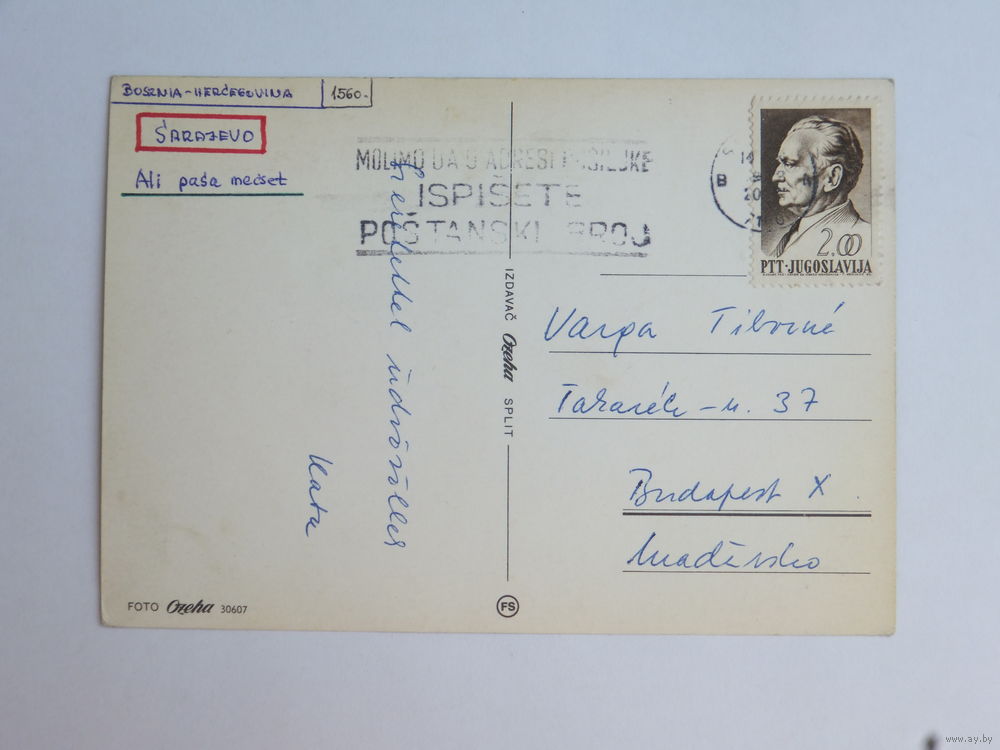 BOSZNIA-HERCEGOVINA 1560.
SARAJEVO
Ali paša mecset
MOLIMO DA U ADRESI POŠILJKE
ISPIŠETE
POŠTANSKI BROJ
14
B
20
2.00
PTT-JUGOSLAVIJA
Szeretettel üdvözöllek
Kata
IZDAVAČ Ozeha SPLIT
Varga Tiborné
37
Budapest X
Mađarsko
FOTO Ozeha 30607
FS
www.ay.by